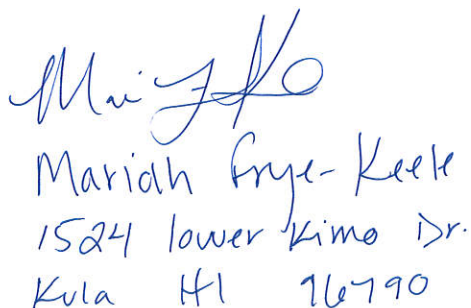 Mariah Frye-Keele
1524 lower Kimo Dr.
Kula HI 96790